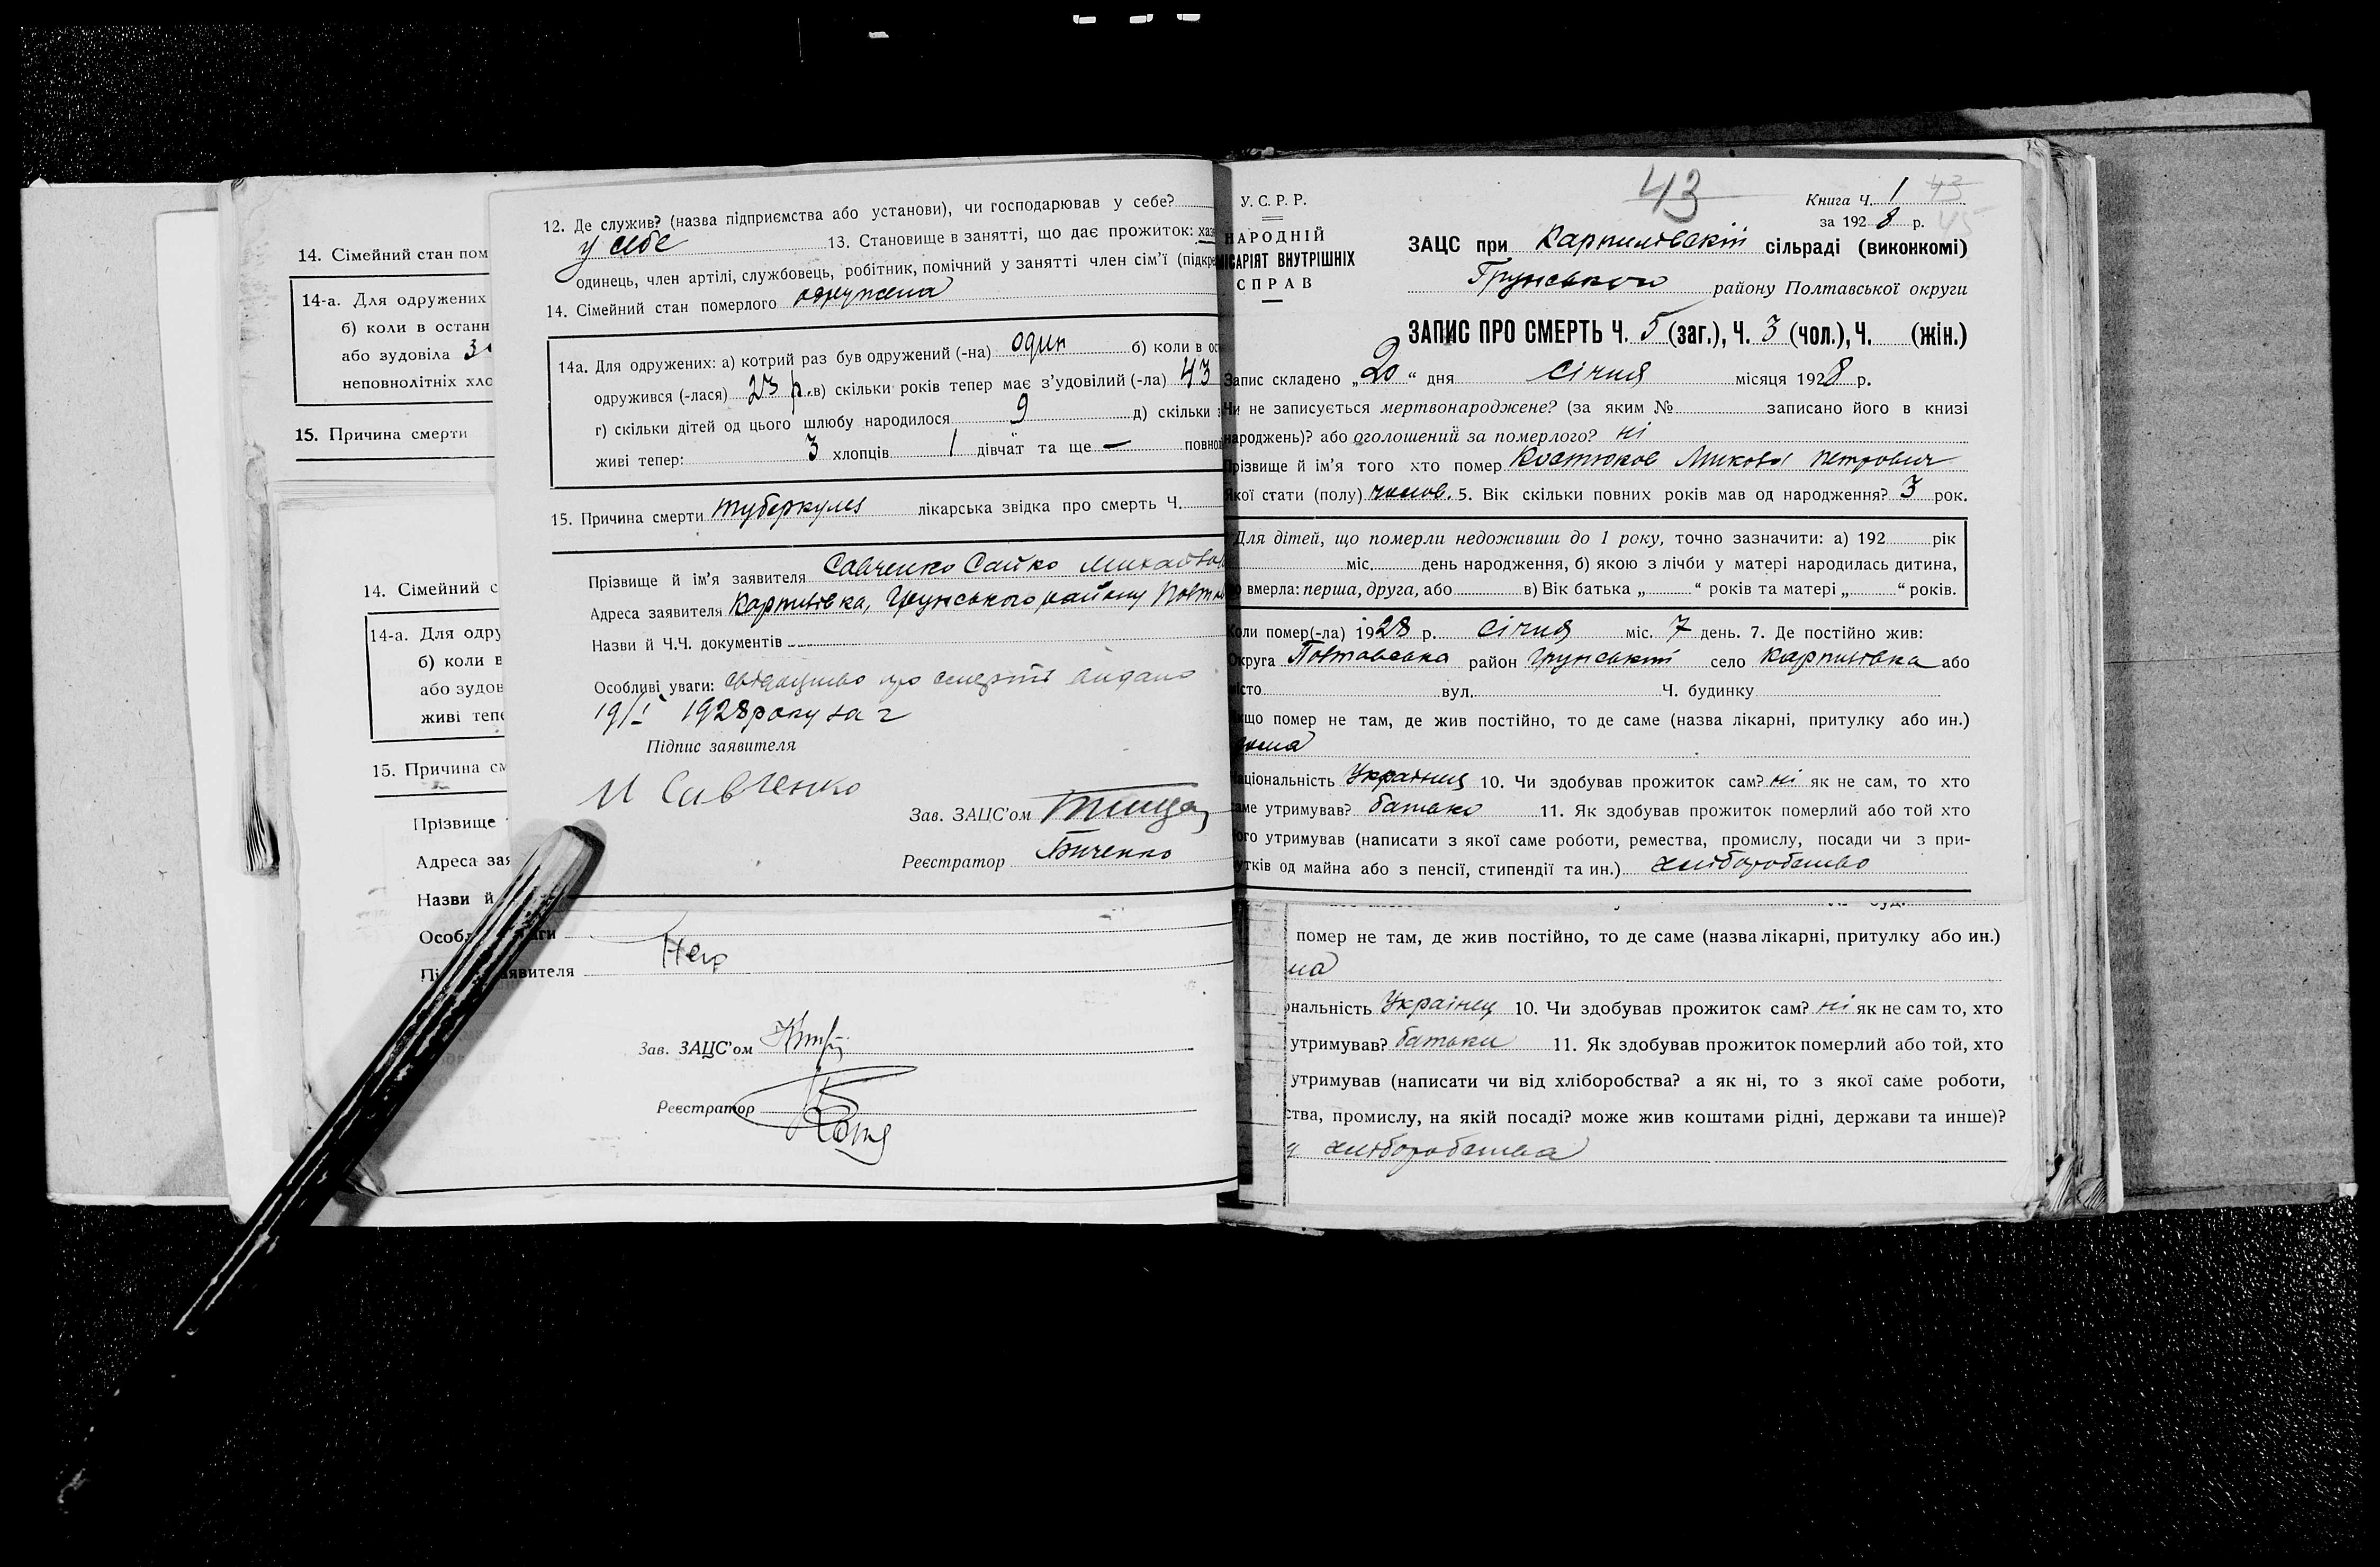 14. Сімейний стан пом
14-а. Для одружених
б) коли в останн
або зудовіла
неповнолітніх хло
15. Причина смерти
14. Сімейний с
14-а. Для одру
б) коли в
або зудов
живі тепе
15. Причина см
Прізвище
Адреса зая
Назви й
Особл
явителя
Зав. ЗАЦС'ом
Реєстратор
12. Де служив? (назва підприємства або установи), чи господарював у себе?
у себе 13. Становище в занятті, що дає прожиток: хаз
одинець, член артілі, службовець, робітник, помічний у занятті член сім'ї (підкре
14. Сімейний стан померлого одружена
14а. Для одружених: а) котрий раз був одружений (-на) один б) коли в ос
одружився (-лася) 23 р. в) скільки років тепер має з'удовілий (-ла) 43
г) скільки дітей од цього шлюбу народилося 9 д) скільки з
живі тепер: 3 хлопців 1 дівчат та ще — повно
15. Причина смерти туберкульз лікарська звідка про смерть Ч.
Прізвище й ім'я заявителя Савченко Сайко
Адреса заявителя Карпилівка, Грунського району Полтав
Назви й Ч.Ч. документів
Особливі уваги: свідоцтво про смерть видано
19/I 1928 року за
Підпис заявителя
И Савченко
Зав. ЗАЦС'ом
Реєстратор Биченко
У.С.Р.Р.
НАРОДНІЙ
ІСАРІЯТ ВНУТРІШНІХ
СПРАВ
43
Книга Ч. 1 43
за 1928 р. 45
ЗАЦС при Карпилівскій сільраді (виконкомі)
Грунського району Полтавської округи
ЗАПИС ПРО СМЕРТЬ Ч. 5 (заг.), Ч. 3 (чол.), Ч. (жін.)
Запис складено „20“ дня Січня місяця 1928 р.
Чи не записується мертвонароджене? (за яким № записано його в книзі
народжень)? або оголошений за померлого? ні
Прізвище й ім'я того хто помер Костюков Микола Петрович
Якої стати (полу) чолов. 5. Вік скільки повних років мав од народження? 3 рок.
Для дітей, що померли недоживши до 1 року, точно зазначити: а) 192 рік
міс. день народження, б) якою з лічби у матері народилась дитина,
вмерла: перша, друга, або в) Вік батька „ “ років та матері „ “ років.
Коли помер(-ла) 1928 р. січня міс. 7 день. 7. Де постійно жив:
Округа Полтавська район Грунський село Карпилівка або
місто вул. Ч. будинку
Якщо помер не там, де жив постійно, то де саме (назва лікарні, притулку або ин.)
дома
Національність Українец 10. Чи здобував прожиток сам? ні як не сам, то хто
саме утримував? батько 11. Як здобував прожиток померлий або той хто
його утримував (написати з якої саме роботи, ремества, промислу, посади чи з при-
утків од майна або з пенсії, стипендії та ин.) хліборобство
помер не там, де жив постійно, то де саме (назва лікарні, притулку або ин.)
ма
ональність Українец 10. Чи здобував прожиток сам? ні як не сам то, хто
утримував? батьки 11. Як здобував прожиток померлий або той, хто
утримував (написати чи від хліборобства? а як ні, то з якої саме роботи,
ства, промислу, на якій посаді? може жив коштами рідні, держави та инше)?
хліборобства